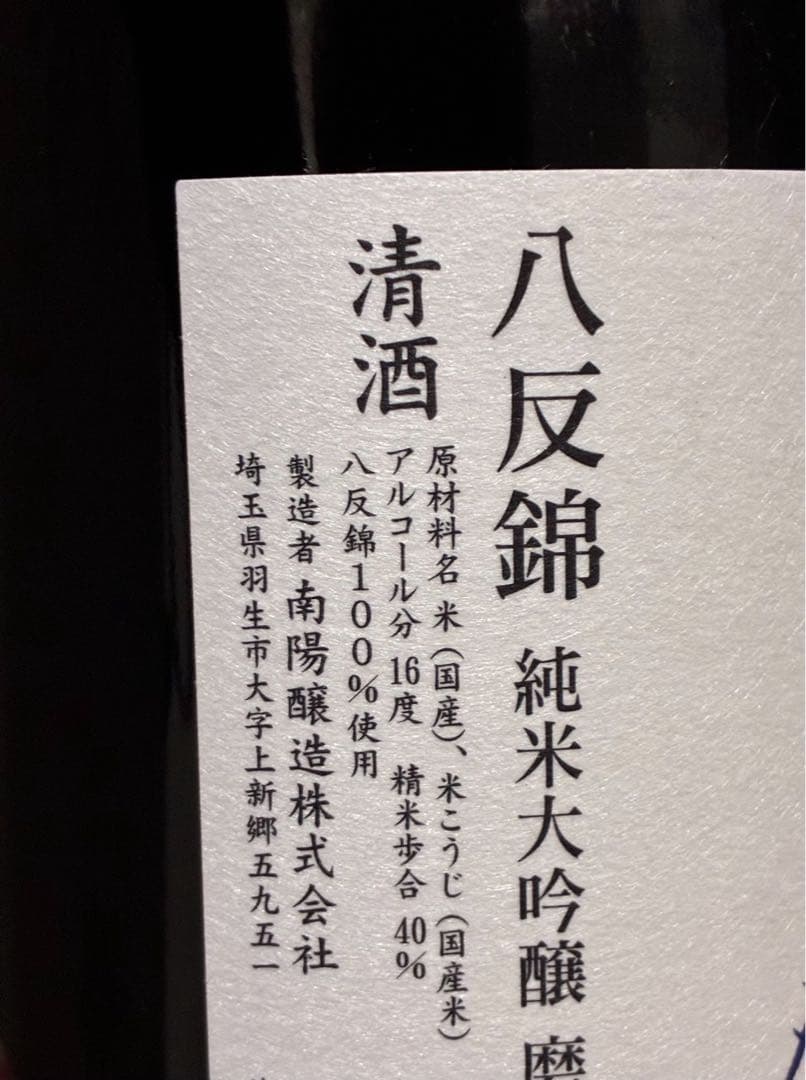 八反錦 純米大吟醸 磨
清酒
原材料名 米(国産)、米こうじ(国産米)
アルコール分 16度 精米歩合 40%
八反錦100%使用
製造者 南陽醸造株式会社
埼玉県羽生市大字上新郷五九五一